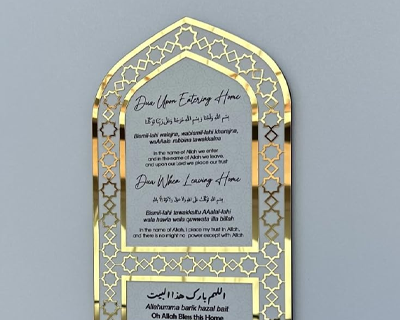 Dua Upon Entering Home
بِسْمِ اللهِ وَلَجْنَا وَ بِسْمِ اللهِ خَرَجْنَا وَعَلَى رَبِّنَا تَوَكَّلْنَا
Bismil-lahi walajna, wabismil-lahi kharajna,
waAAala rabbina tawakkalna
In the name of Allah we enter
and in the name of Allah we leave,
and upon our Lord we place our trust
Dua When Leaving Home
Bismil-lahi tawakkaltu AAalal-lahi
wala hawla wala quwwata illa billah
In the name of Allah, I place my trust in Allah,
and there is no might no power except with Allah.
اللهم بارك هذا البيت
Allahumma barik hazal bait
Oh Allah Bless this Home